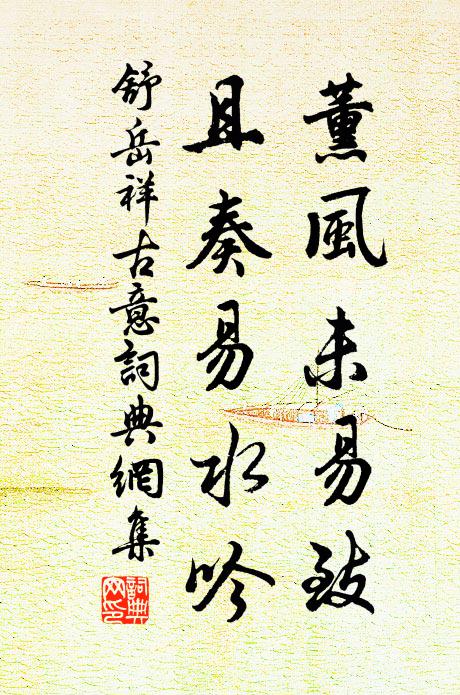 薰風未易致
且奏易水吟
舒岳祥古意詞典網集
詞典網印